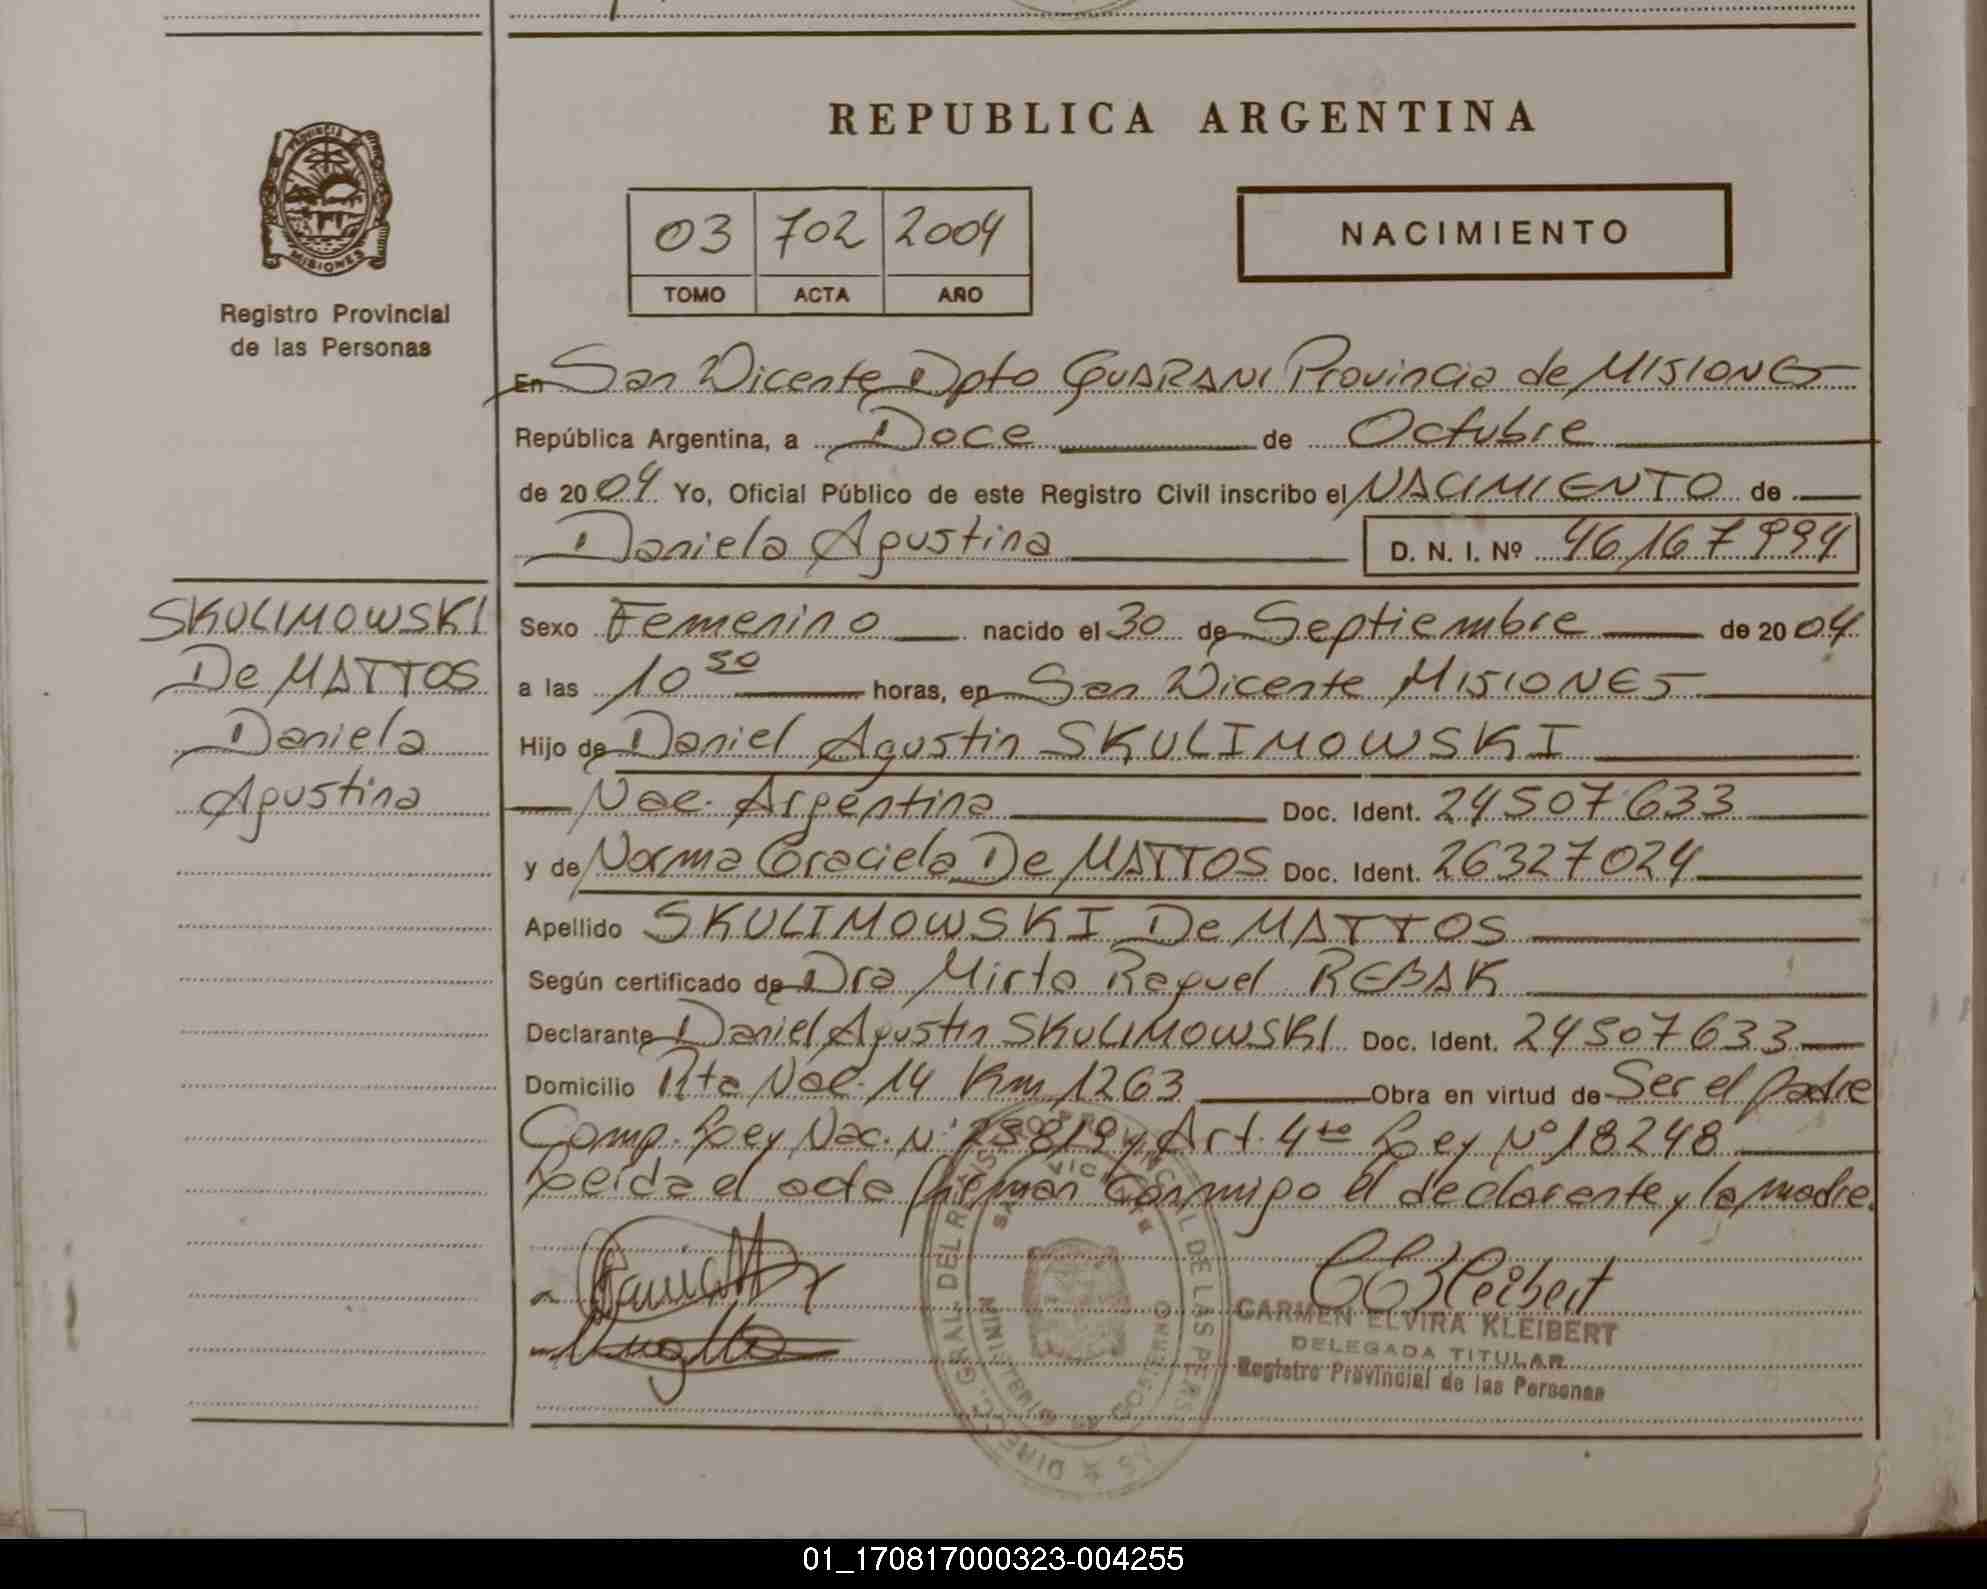 PROVINCIA
MISIONES
Registro Provincial
de las Personas
REPUBLICA ARGENTINA
03 702 2004
TOMO ACTA AÑO
NACIMIENTO
En San Vicente Dpto GUARANI Provincia de MISIONES
República Argentina, a Doce de Octubre
de 2004 Yo, Oficial Público de este Registro Civil inscribo el NACIMIENTO de
Daniela Agustina D. N. I. Nº 46167994
SKULIMOWSKI
De MATTOS
Daniela
Agustina
Sexo Femenino nacido el 30 de Septiembre de 2004
a las 10 50 horas, en San Vicente MISIONES
Hijo de Daniel Agustin SKULIMOWSKI
Nac. Argentina Doc. Ident. 24507633
y de Norma Graciela De MATTOS Doc. Ident. 26327024
Apellido SKULIMOWSKI De MATTOS
Según certificado de Dra Mirta Raquel REBAK
Declarante Daniel Agustin SKULIMOWSKI Doc. Ident. 24507633
Domicilio Rta Nac. 14 Km 1263 Obra en virtud de Ser el padre
Comp. Ley Nac. Nº 25819 y Art. 4to Ley Nº 18248
Leida el acta firman conmigo el declarante y la madre.
CEKleibert
CARMEN ELVIRA KLEIBERT
DELEGADA TITULAR
Registro Provincial de las Personas
DIRECC. GRAL. DEL REGISTRO PROVINCIAL DE LAS PERSONAS
SAN VICENTE
MINISTERIO DE GOBIERNO
01_170817000323-004255